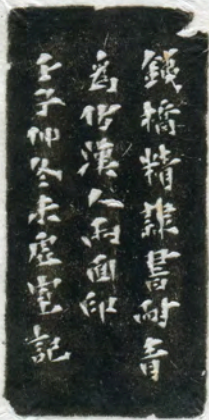 銕橋精隸書耐青
為仿漢人兩面印
壬子仲冬未虛室記